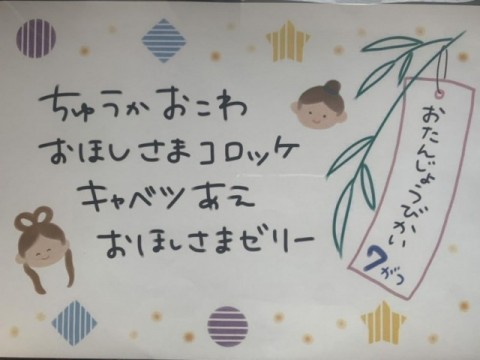 ちゅうかおこわ
おほしさまコロッケ
キャベツあえ
おほしさまゼリー
おたんじょうびかい
7がつ